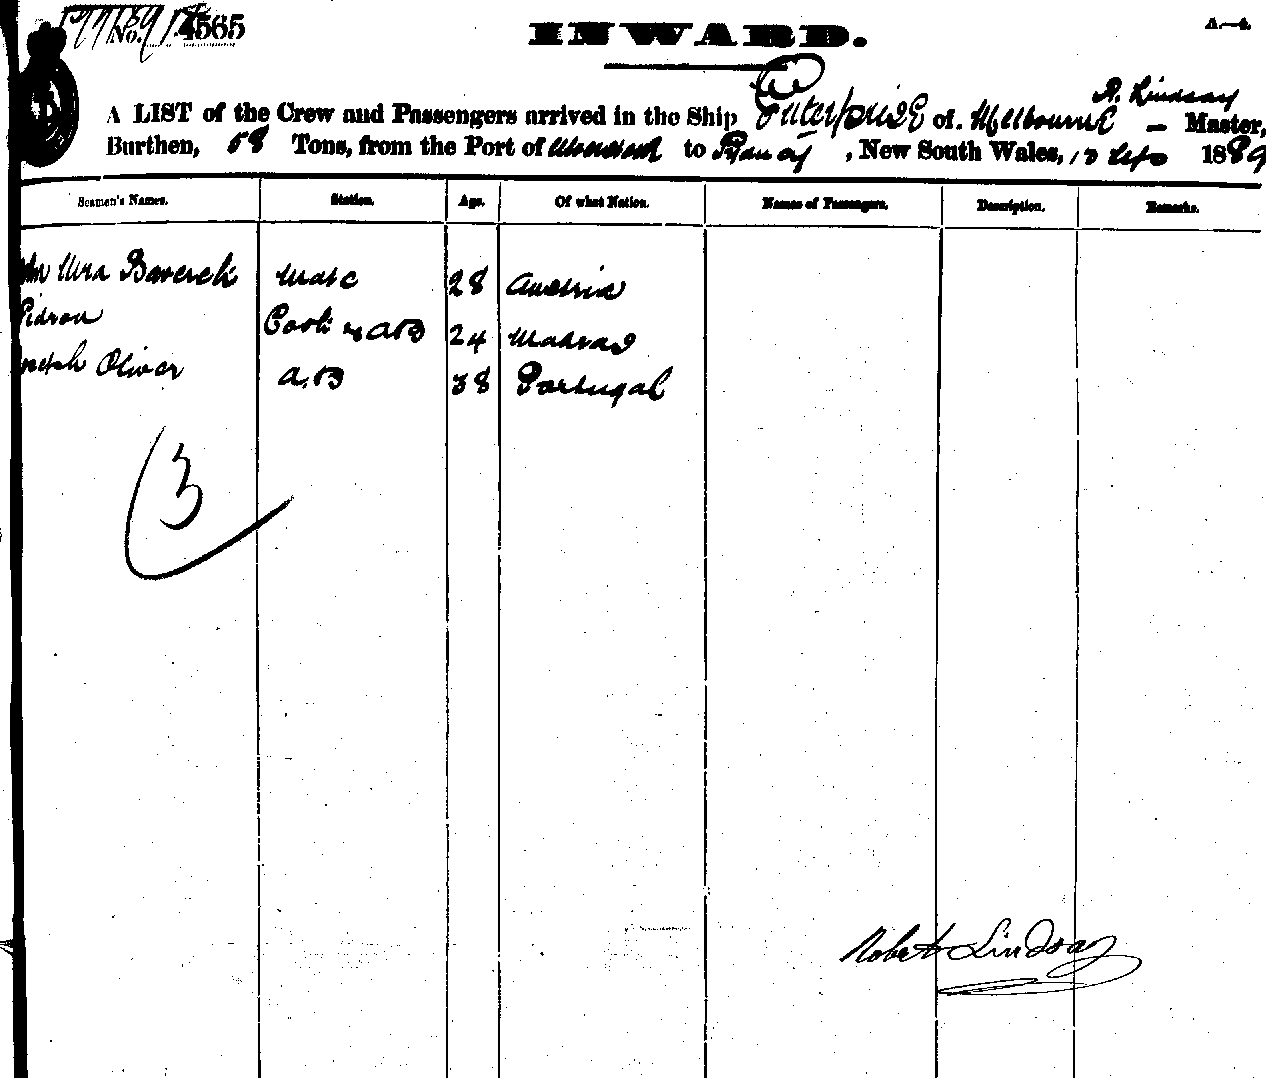 No. 4565
INWARD.
A.—4.
R. Lindsay
A LIST of the Crew and Passengers arrived in the Ship Enterprise of Melbourne — Master,
Burthen, 58 Tons, from the Port of to , New South Wales, 13 Sep 1889
Seamen's Names. Station. Age. Of what Nation. Names of Passengers. Description. Remarks.
Mate 28 Austria
Pidron Cook & AB 24 Madras
Oliver A.B 38 Portugal
3
Robert Lindsay